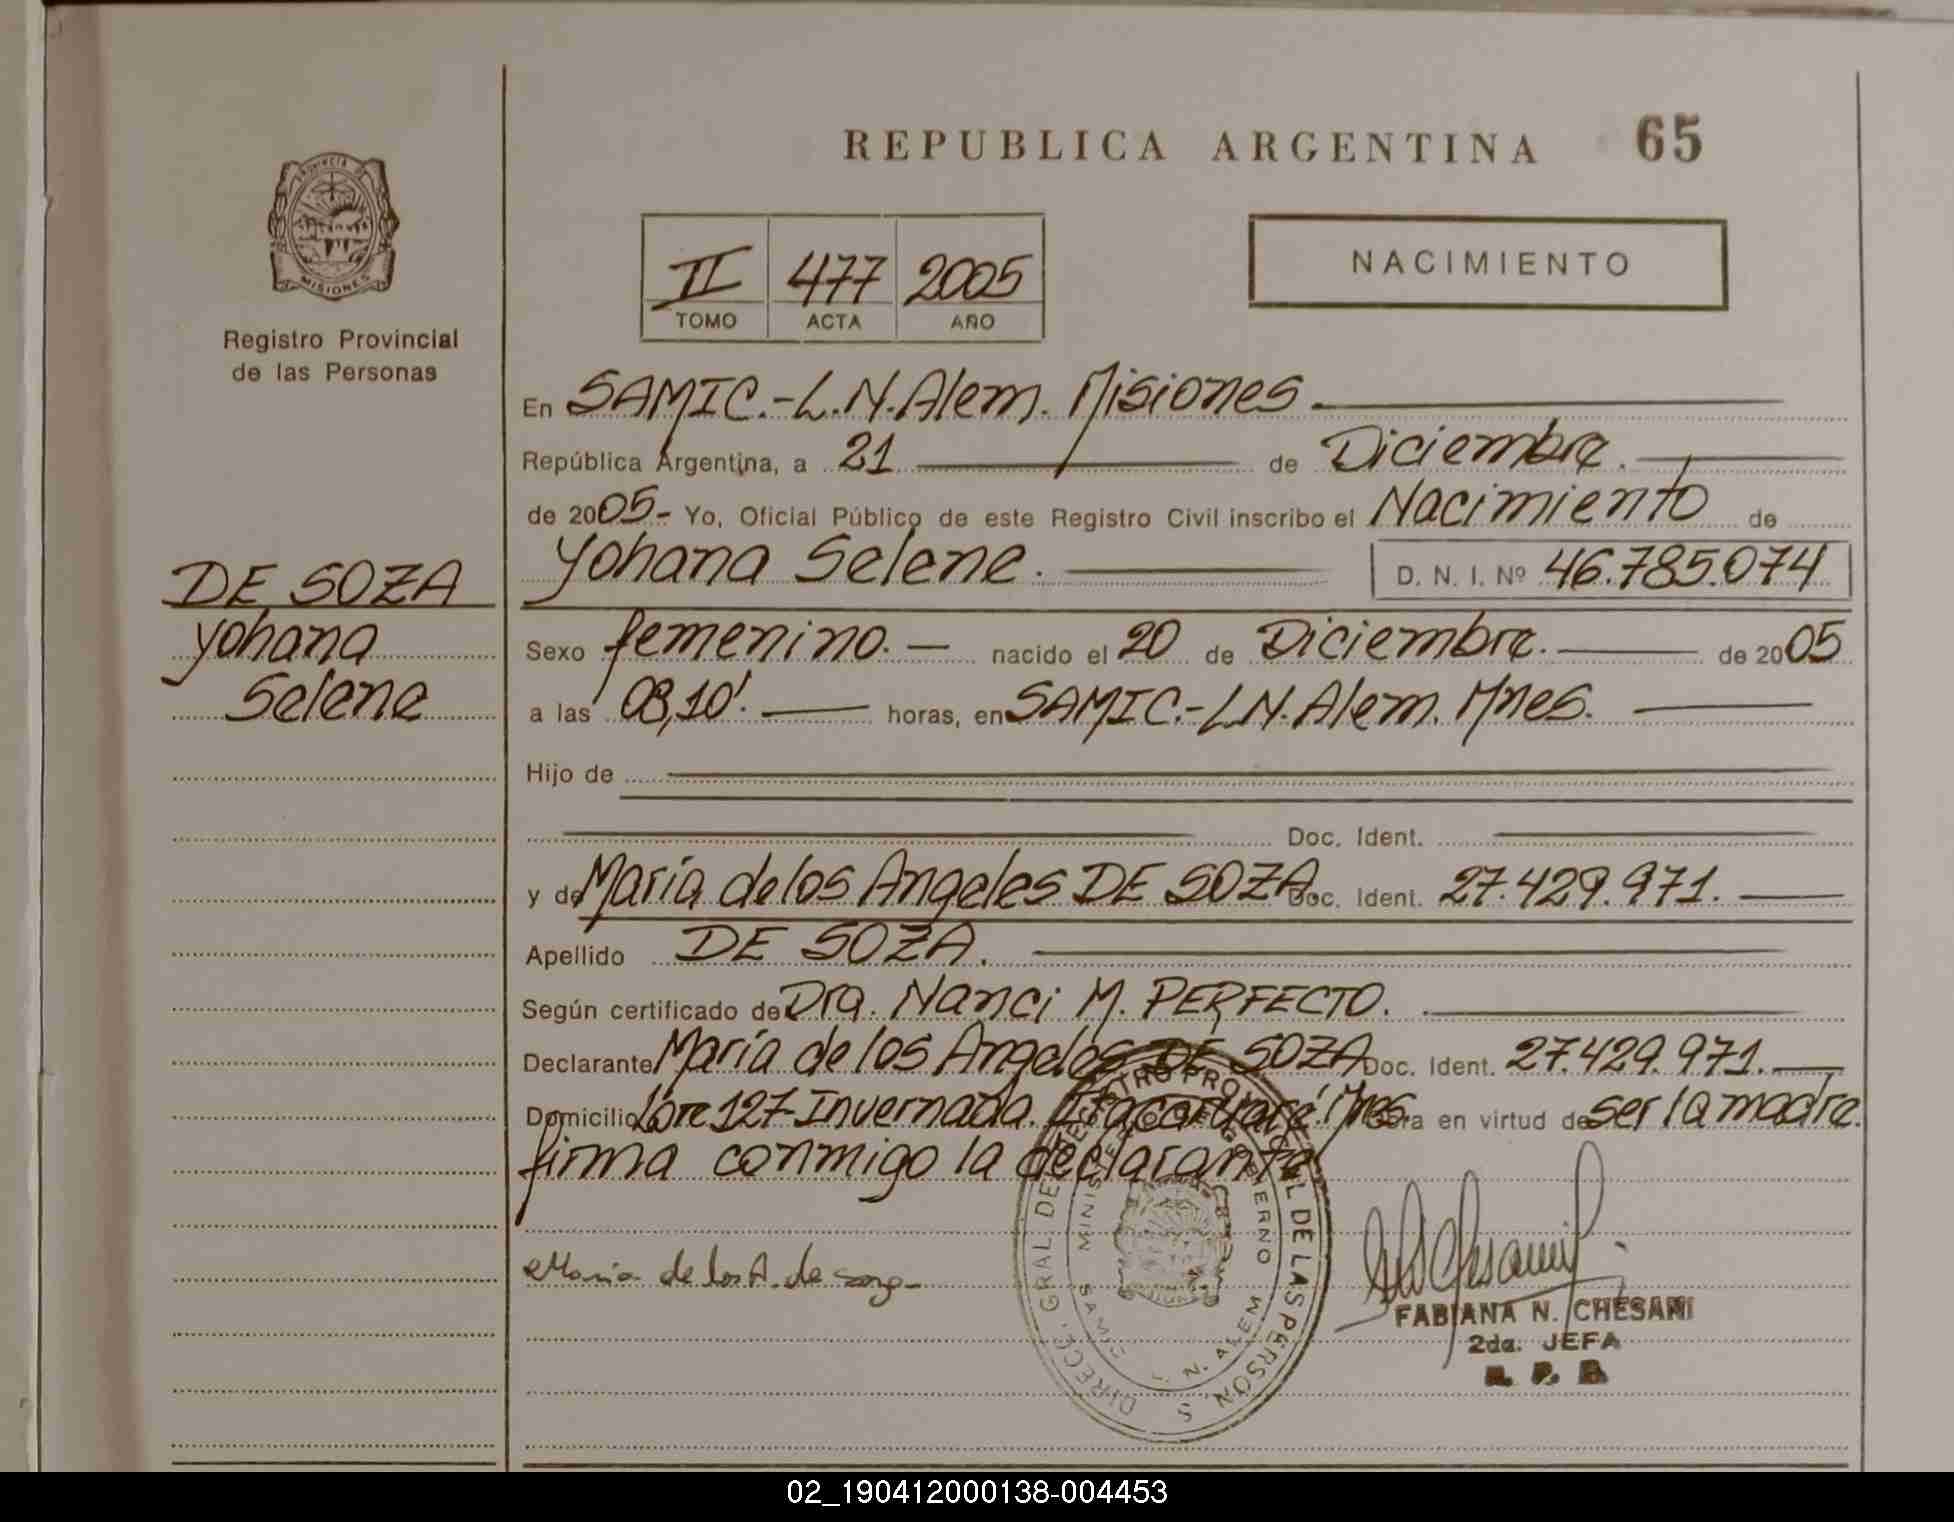 REPUBLICA ARGENTINA 65
PROVINCIA DE
MISIONES
Registro Provincial
de las Personas
II 477 2005
TOMO ACTA AÑO
NACIMIENTO
En SAMIC.-L.N.Alem. Misiones.
República Argentina, a 21 de Diciembre.
de 2005- Yo, Oficial Público de este Registro Civil inscribo el Nacimiento de
Yohana Selene. D. N. I. Nº 46.785.074
DE SOZA
Yohana
Selene
Sexo femenino.- nacido el 20 de Diciembre. de 2005
a las 08,10'. horas, en SAMIC.-L.N.Alem. Mnes.
Hijo de
Doc. Ident.
y de María de los Angeles DE SOZA Doc. Ident. 27.429.971.
Apellido DE SOZA.
Según certificado de Dra. Nanci M. PERFECTO.
Declarante María de los Angeles DE SOZA Doc. Ident. 27.429.971.
Domicilio Lote 127-Invernada. Itacaruaré. Mnes. en virtud de ser la madre.
firma conmigo la declarante
María de los A. de soza-
DIRECC. GRAL. DEL REGISTRO PROVINCIAL DE LAS PERSONAS
MINISTERIO DE GOBIERNO
SAMIC L. N. ALEM
FABIANA N. CHESANI
2da. JEFA
R. P. P.
02_190412000138-004453